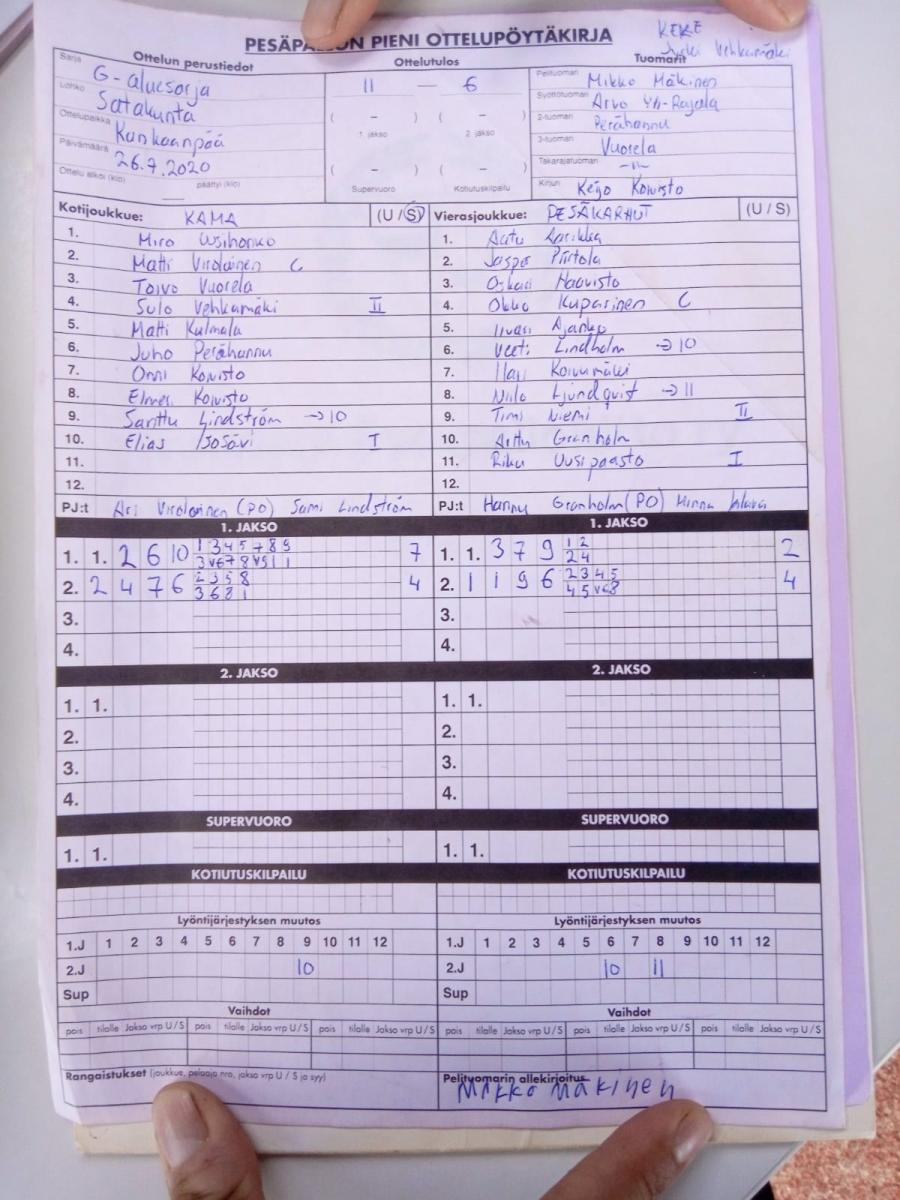 PESÄPALLON PIENI OTTELUPÖYTÄKIRJA
KEKE
Vehkamäki
Ottelun perustiedot
Sarja G-aluesarja
Lohko Satakunta
Ottelupaikka Kankaanpää
Päivämäärä 26.7.2020
Ottelu alkoi (klo) päättyi (klo)
Ottelutulos
11 — 6
( – ) ( – )
1. jakso 2. jakso
( – ) ( – )
Supervuoro Kotiutuskilpailu
Tuomarit
Pelituomari Mikko Mäkinen
Syöttötuomari Arvo Yli-Rajala
2-tuomari Perähannu
3-tuomari Vuorela
Takarajatuomari -"-
Kirjuri Keijo Koivisto
Kotijoukkue: KAMA (U / S)
1. Miro Uusihonko
2. Matti Virolainen C
3. Toivo Vuorela
4. Sulo Vehkamäki II
5. Matti Kulmala
6. Juho Perähannu
7. Onni Koivisto
8. Elmeri Koivisto
9. Santtu Lindström → 10
10. Elias Isosävi I
11.
12.
PJ:t Ari Virolainen (PO) Sami Lindström
Vierasjoukkue: PESÄKARHUT (U / S)
1. Aatu
2. Jasper Piirtola
3. Oskari Haavisto
4. Okko Kuparinen C
5. Iivari Ajanko
6. Veeti Lindholm → 10
7. Koivumäki
8. Niilo Ljundqvist → 11
9. Timi Niemi II
10. Arttu Granholm
11. Riku Uusipaasto I
12.
PJ:t Hannu Granholm (PO) Minna
1. JAKSO
1. 1. 2 6 10 1 3 4 5 7 8 9 7
3 V6 7 8 V5 1 1
2. 2 4 7 6 2 3 5 8 4
3 6 8 1
3.
4.
1. JAKSO
1. 1. 3 7 9 1 2 2
2 4
2. 1 1 9 6 2 3 4 5 4
4 5 V6 8
3.
4.
2. JAKSO
1. 1.
2.
3.
4.
2. JAKSO
1. 1.
2.
3.
4.
SUPERVUORO
1. 1.
SUPERVUORO
1. 1.
KOTIUTUSKILPAILU
KOTIUTUSKILPAILU
Lyöntijärjestyksen muutos
1.J 1 2 3 4 5 6 7 8 9 10 11 12
2.J 10
Sup
Lyöntijärjestyksen muutos
1.J 1 2 3 4 5 6 7 8 9 10 11 12
2.J 10 11
Sup
Vaihdot
pois tilalle Jakso vrp U / S pois tilalle Jakso vrp U / S pois tilalle Jakso vrp U / S
Vaihdot
pois tilalle Jakso vrp U / S pois tilalle Jakso vrp U / S pois tilalle Jakso vrp U / S
Rangaistukset (joukkue, pelaaja nro, jakso vrp U / S ja syy)
Pelituomarin allekirjoitus
Mikko Mäkinen